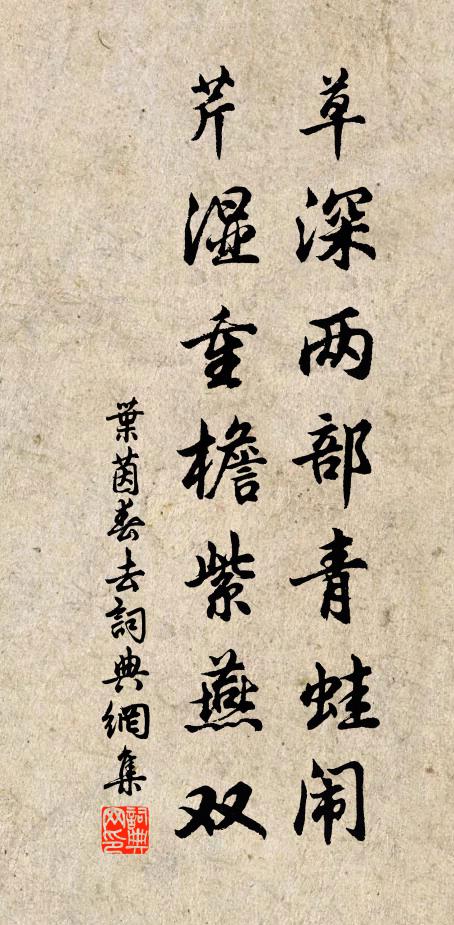 草深两部青蛙闹
芹湿重檐紫燕双
葉茵春去詞典網集
詞典
网印